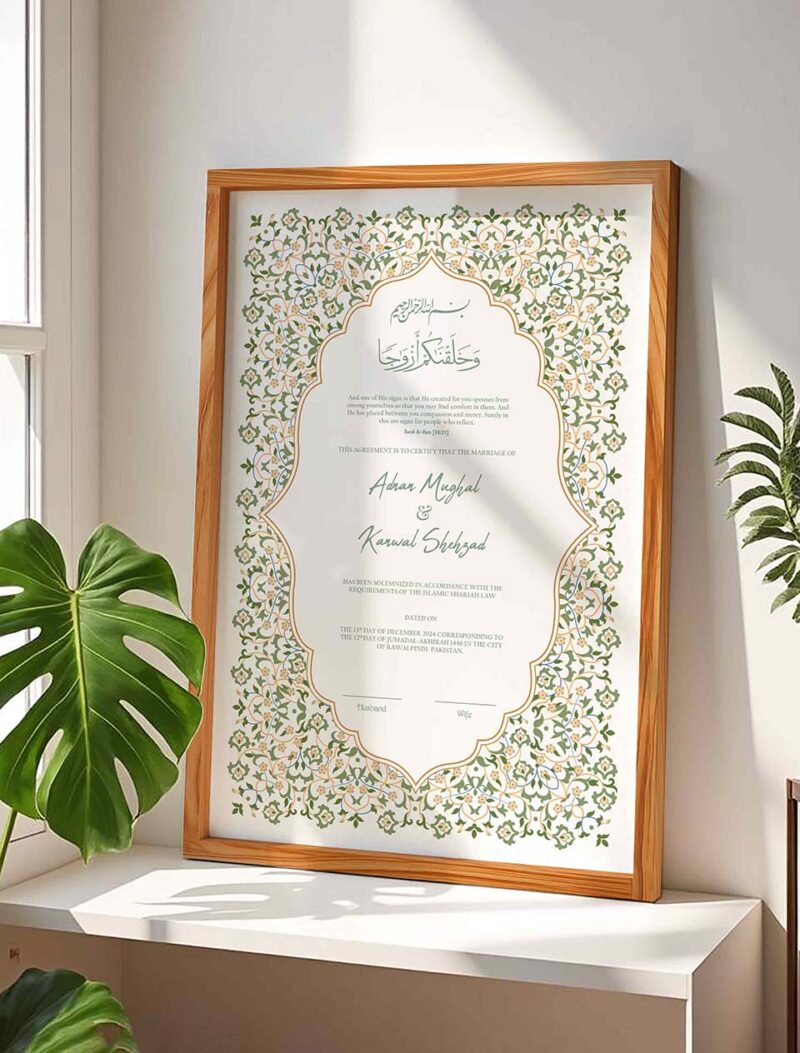 بسم الله الرحمن الرحيم
وَخَلَقْنَاكُمْ أَزْوَاجًا
And one of His signs is that He created for you spouses from
among yourselves so that you may find comfort in them. And
He has placed between you compassion and mercy. Surely in
this are signs for people who reflect.
Surah Ar-Rum [30:21]
THIS AGREEMENT IS TO CERTIFY THAT THE MARRIAGE OF
Adnan Mughal
&
Kanwal Shehzad
HAS BEEN SOLEMNIZED IN ACCORDANCE WITH THE
REQUIREMENTS OF THE ISLAMIC SHARIAH LAW
DATED ON
THE 13th DAY OF DECEMBER 2024 CORRESPONDING TO
THE 12th DAY OF JUMADAL-AKHIRAH 1446 IN THE CITY
OF RAWALPINDI PAKISTAN.
Husband Wife